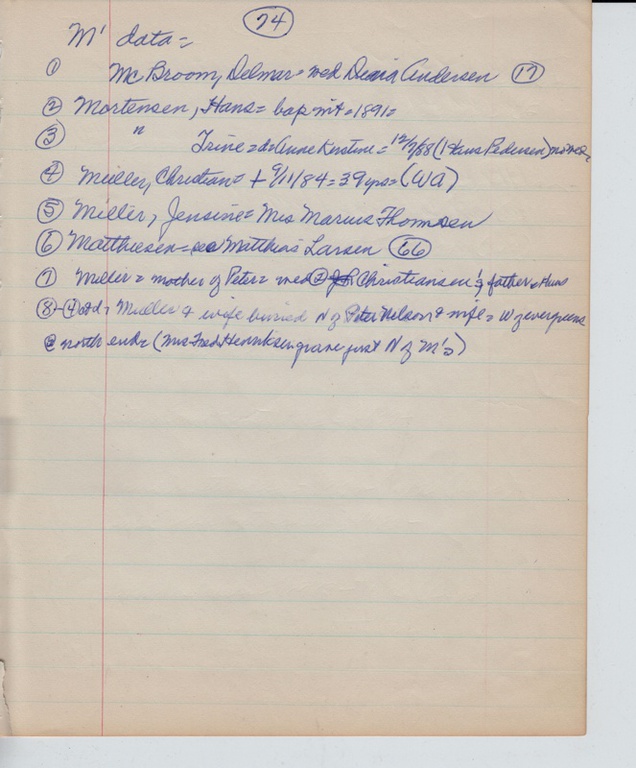 74
M' data =
① Mc Broom, Delmar = wed Andersen ⑰
② Mortensen, Hans = bap mt = 1891 =
③ " Trine = d = Anne Kirstine = 12/7/88 (1 Hans Pedersen)
④ Müller, Christian = + 9/11/84 = 39 yrs = (WA)
⑤ Miller, Jensine = Mrs Marius Thomsen
⑥ Matthiesen = see Matthias Larsen ㊻
⑦ Miller = mother of Peter = wed ② Christiansen's father = Hans
⑧ Mueller & wife buried N of Peter Nelson & wife = W of evergreens
@ north end = (Mrs Fred Henriksen grave just N of M's)